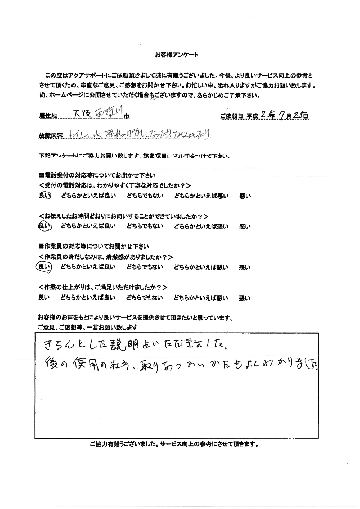 お客様アンケート
この度はアクアサポートにご依頼頂きまして誠に有難うございました。今後、より良いサービス向上の参考と
させて頂くため、率直なご意見、ご感想をお聞かせ下さい。お忙しい中、恐れ入りますがご協力お願い致します。
尚、ホームページに公開させていただく場合もございますので、あらかじめご了承下さい。
居住地 大阪 市
ご依頼日 平成 年 7月2日
依頼内容 トイレ
下記アンケートにご記入お願い致します。該当項目に マルをつけて下さい。
■電話受付の対応等についてお聞かせ下さい
＜受付の電話対応は、わかりやすく丁寧な対応でしたか？＞
良い どちらかといえば良い どちらでもない どちらかといえば悪い 悪い
＜お伝えしたお時間どおりにお伺いすることができていましたか？＞
良い どちらかといえば良い どちらでもない どちらかといえば悪い 悪い
■作業員の対応等についてお聞かせ下さい
＜作業員の身だしなみは、清潔感がありましたか？＞
良い どちらかといえば良い どちらでもない どちらかといえば悪い 悪い
＜作業の仕上がりは、ご満足いただけましたか？＞
良い どちらかといえば良い どちらでもない どちらかといえば悪い 悪い
お客様のお声をもとにより良いサービスを提供させて頂きたいと思っています。
ご意見、ご感想等、一言お願い致します
きちんとした説明をいただきました。
後の使用の仕方、取りあつかいかたもよくわかりました
ご協力有難うございました。サービス向上の参考にさせて頂きます。